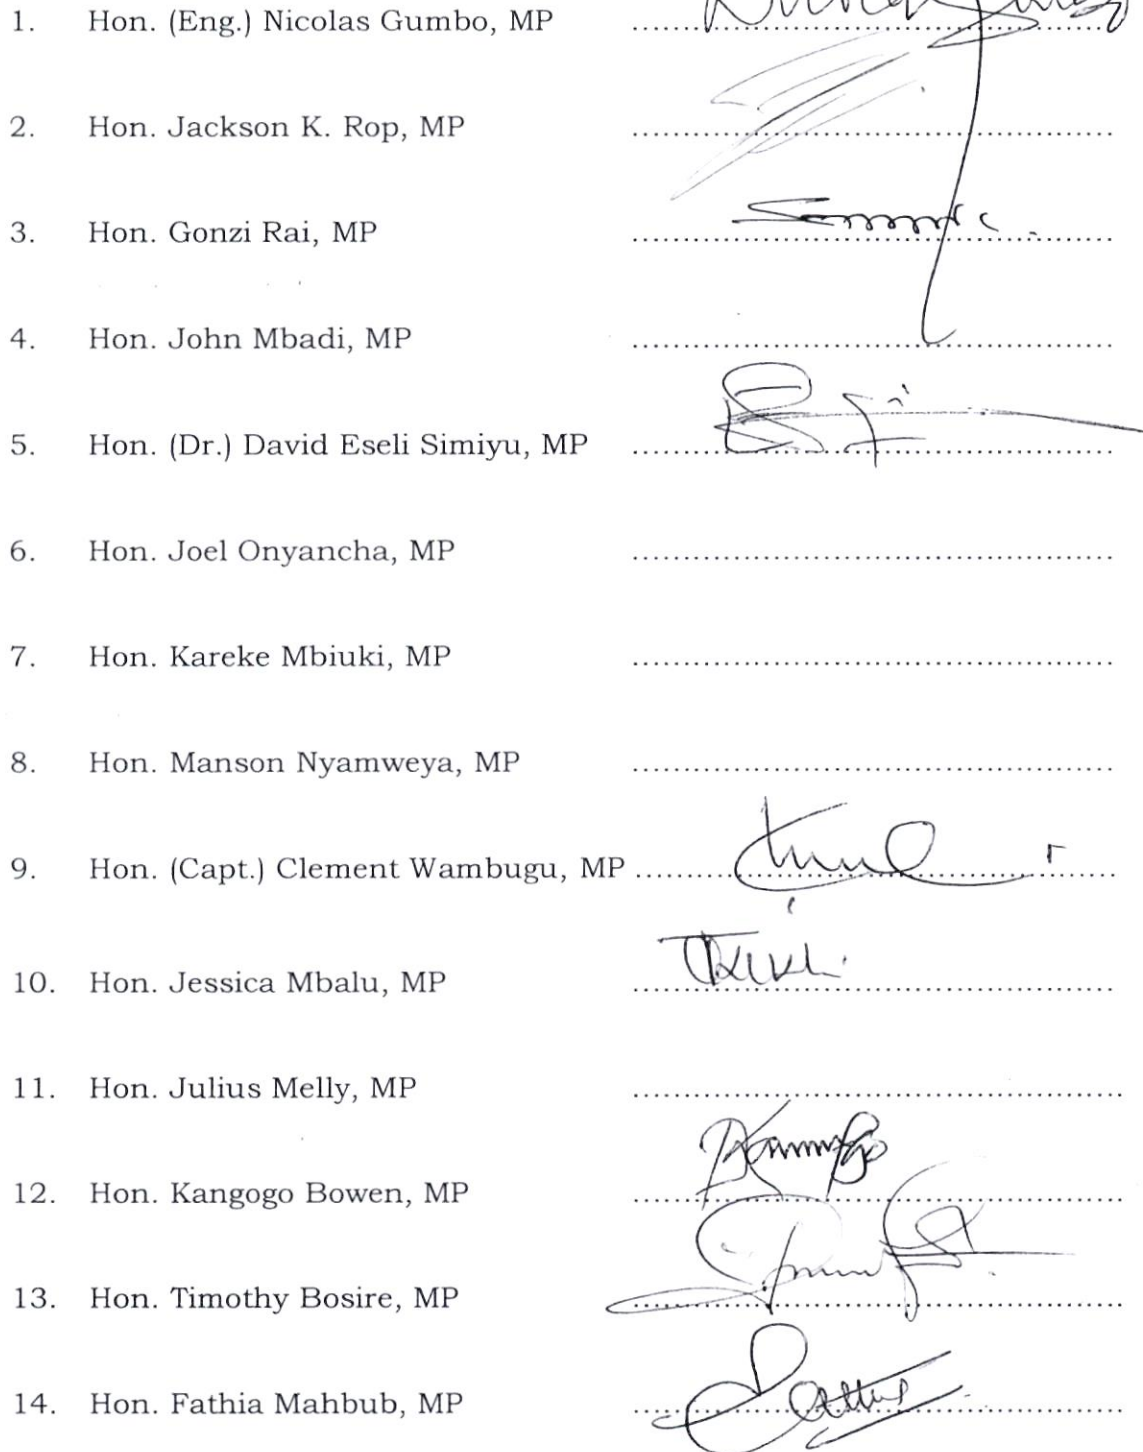 1. Hon. (Eng.) Nicolas Gumbo, MP ........................................
2. Hon. Jackson K. Rop, MP ........................................
3. Hon. Gonzi Rai, MP ........................................
4. Hon. John Mbadi, MP ........................................
5. Hon. (Dr.) David Eseli Simiyu, MP ........................................
6. Hon. Joel Onyancha, MP ........................................
7. Hon. Kareke Mbiuki, MP ........................................
8. Hon. Manson Nyamweya, MP ........................................
9. Hon. (Capt.) Clement Wambugu, MP ........................................
10. Hon. Jessica Mbalu, MP ........................................
11. Hon. Julius Melly, MP ........................................
12. Hon. Kangogo Bowen, MP ........................................
13. Hon. Timothy Bosire, MP ........................................
14. Hon. Fathia Mahbub, MP ........................................